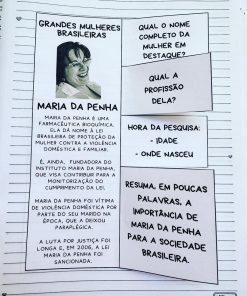 GRANDES MULHERES
BRASILEIRAS
MARIA DA PENHA
MARIA DA PENHA É UMA
FARMACÊUTICA BIOQUÍMICA.
ELA DÁ NOME À LEI
BRASILEIRA DE PROTEÇÃO DA
MULHER CONTRA A VIOLÊNCIA
DOMÉSTICA E FAMILIAR.
É, AINDA, FUNDADORA DO
INSTITUTO MARIA DA PENHA,
QUE VISA CONTRIBUIR PARA A
MONITORIZAÇÃO DO
CUMPRIMENTO DA LEI.
MARIA DA PENHA FOI VÍTIMA
DE VIOLÊNCIA DOMÉSTICA POR
PARTE DO SEU MARIDO NA
ÉPOCA, QUE A DEIXOU
PARAPLÉGICA.
A LUTA POR JUSTIÇA FOI
LONGA E, EM 2006, A LEI
MARIA DA PENHA FOI
SANCIONADA.
QUAL O NOME
COMPLETO DA
MULHER EM
DESTAQUE?
QUAL A
PROFISSÃO
DELA?
HORA DA PESQUISA:
- IDADE
- ONDE NASCEU
RESUMA, EM POUCAS
PALAVRAS, A
IMPORTÂNCIA DE
MARIA DA PENHA
PARA A SOCIEDADE
BRASILEIRA.